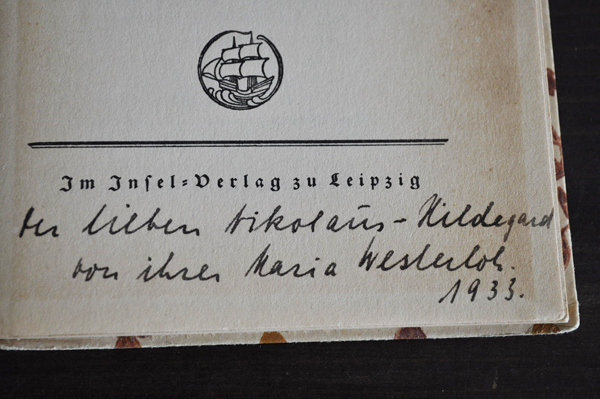 Im Insel-Verlag zu Leipzig
Der lieben Nikolaus-Hildegard
von ihrer Maria Westerloh.
1933.